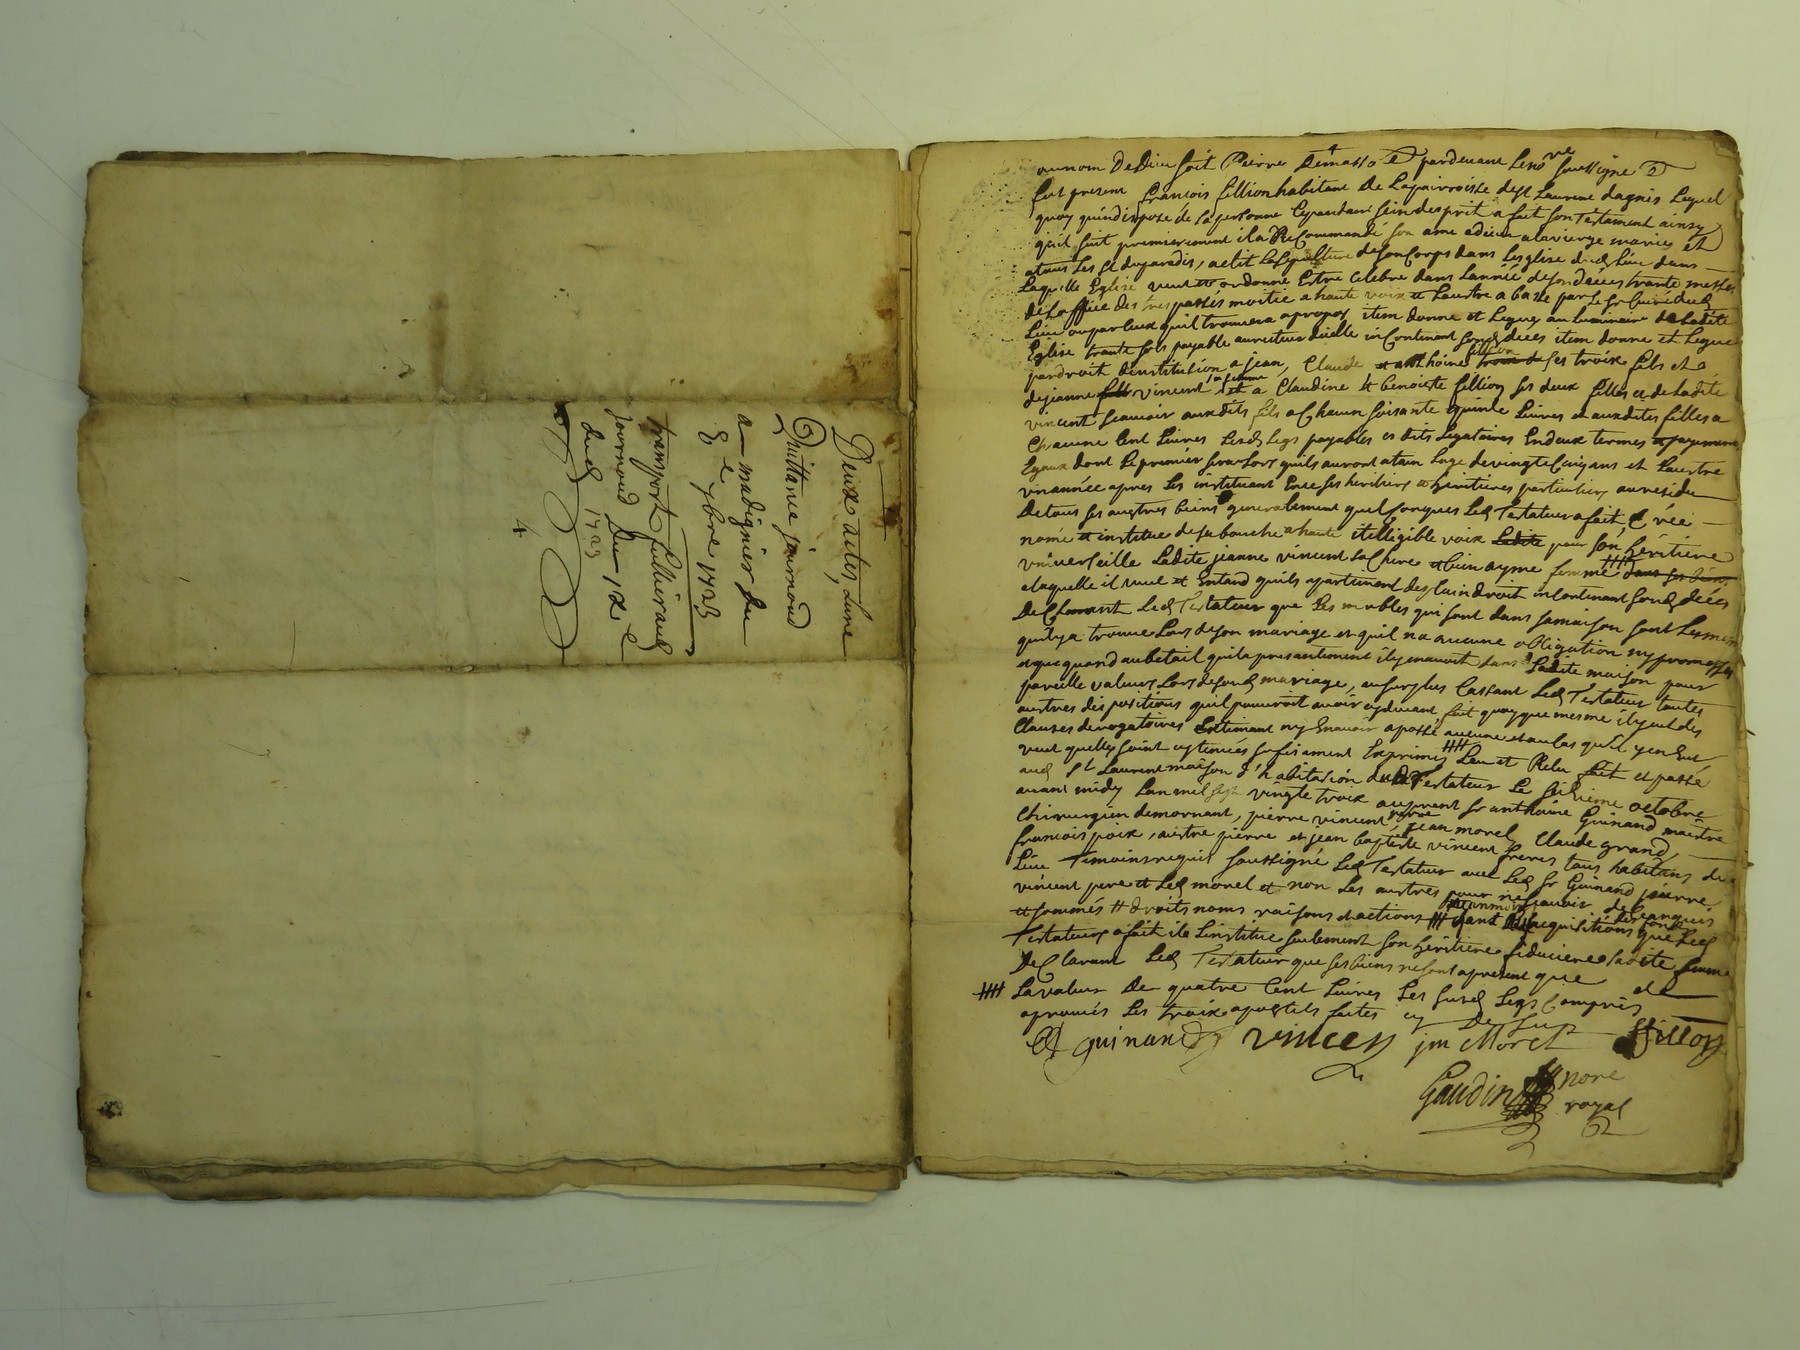 Deux actes, Lune
Quittance journoud
a madignier du
8 e 9bre 1723
transport fillieraud
journoud Du 12 e
dud 1723
4
au nom De Dieu soit Pierre Demasso & pardevant Le no re soussigné &
fut present françois fillion habitant De La parroisse de st Laurent dagnis Lequel
quoy quindispozé de sa personne Cepandant sein desprit a fait son Testament ainsy
quil suit premierement il a Recommandé son ame a dieu a la vierge marie et
a tous Les st du paradis, a elit La sepulture de son Corps dans Leglise dud Lieu dans
Laquelle Eglise veut et ordonne Estre Celebré dans Lannée de son décés trante messes
de Loffice des trespassés moitié a haute voix et Lautre a basse par Le sr Curé dud
Lieu ou par Ceux quil trouvera a propos item donne et Legue au Luminaire de Ladite
Eglise trante sols payable au recteur dicelle in Continant sond déces item donne et Legue
par droit dinstitution a jean, Claude et anthoine fillion ses troix fils et a
de jeanne vincent sa femme et a Claudine et benoiste fillion ses deux filles et de Ladite
vincent scavoir auxdits fils a Chacun soisante quinze Livres et auxdites filles a
Chacune Cent Livres Lesd Legs payables es dits Legataires En deux termes et payements
Egaux dont Le premier sera Lors quils auront atain Lage de vingt Cinq ans et Lautre
une année apres Les instituant En ce ses heritiers et heritieres particuliers au residu
De tous ses auctres biens generalement quelsonques Led Testateur a fait, Créé
nomé et institue de sa bouche a haute itelligible voix Ladite pour son héritiere
universeille Ladite jeanne vincent sa Chere et bien aymé femme
a laquelle il veut et Entand quils apartiennent de plain droit in Continant sond déces
DeClarant Led Testateur que Les meubles qui sont dans sa maison sont Les mesmes
quil y a trouvé Lors de son mariage et quil na aucune obligation ny promesses
et que quand au betail quil a presantement il y en avoit dans Ladite maison pour
pareille valeur Lors de sond mariage, au surplus Cassant Led Testateur toutes
auctres dispositions quil pourroit avoir cy devant fait quoy que mesme il y eut des
Clauses derogatoires Estimant ny En avoir aposté aucune et au Cas quil y en Eut
veut quelles soint cy tenues sufisament Exprimés #### Leu et Relu fait et passé
aud st Laurent maison d'habitation dud Testateur Le sixieme octobre
avant midy Lan mil sept vingte troix au present sr anthoine Guinand maitre
Chirurgien de mornant, pierre vincent pere, jean morel, Claude grand,
francois poix, auctre pierre et jean baptiste vincent freres tous habitans dud
Lieu Temoins requis soussigné Led Testateur avec Led sr Guinand pierre
vincent pere et Led morel et non Les auctres pour ne scavoir de Ce enquis
et sommés # droits noms raisons et actions #### tant
Testateur a fait il a Linstitue seulement son heritiere fiduciere Ladite femme
DeClarant Led Testateur que ses biens ne sont a present que de
#### La valeur De quatre Cent Livres Les susd Legs Compris
aprouvés Les troix apostils faites cy De sus
guinand vincen jm Morel ffillon
Gaudin nore
royal